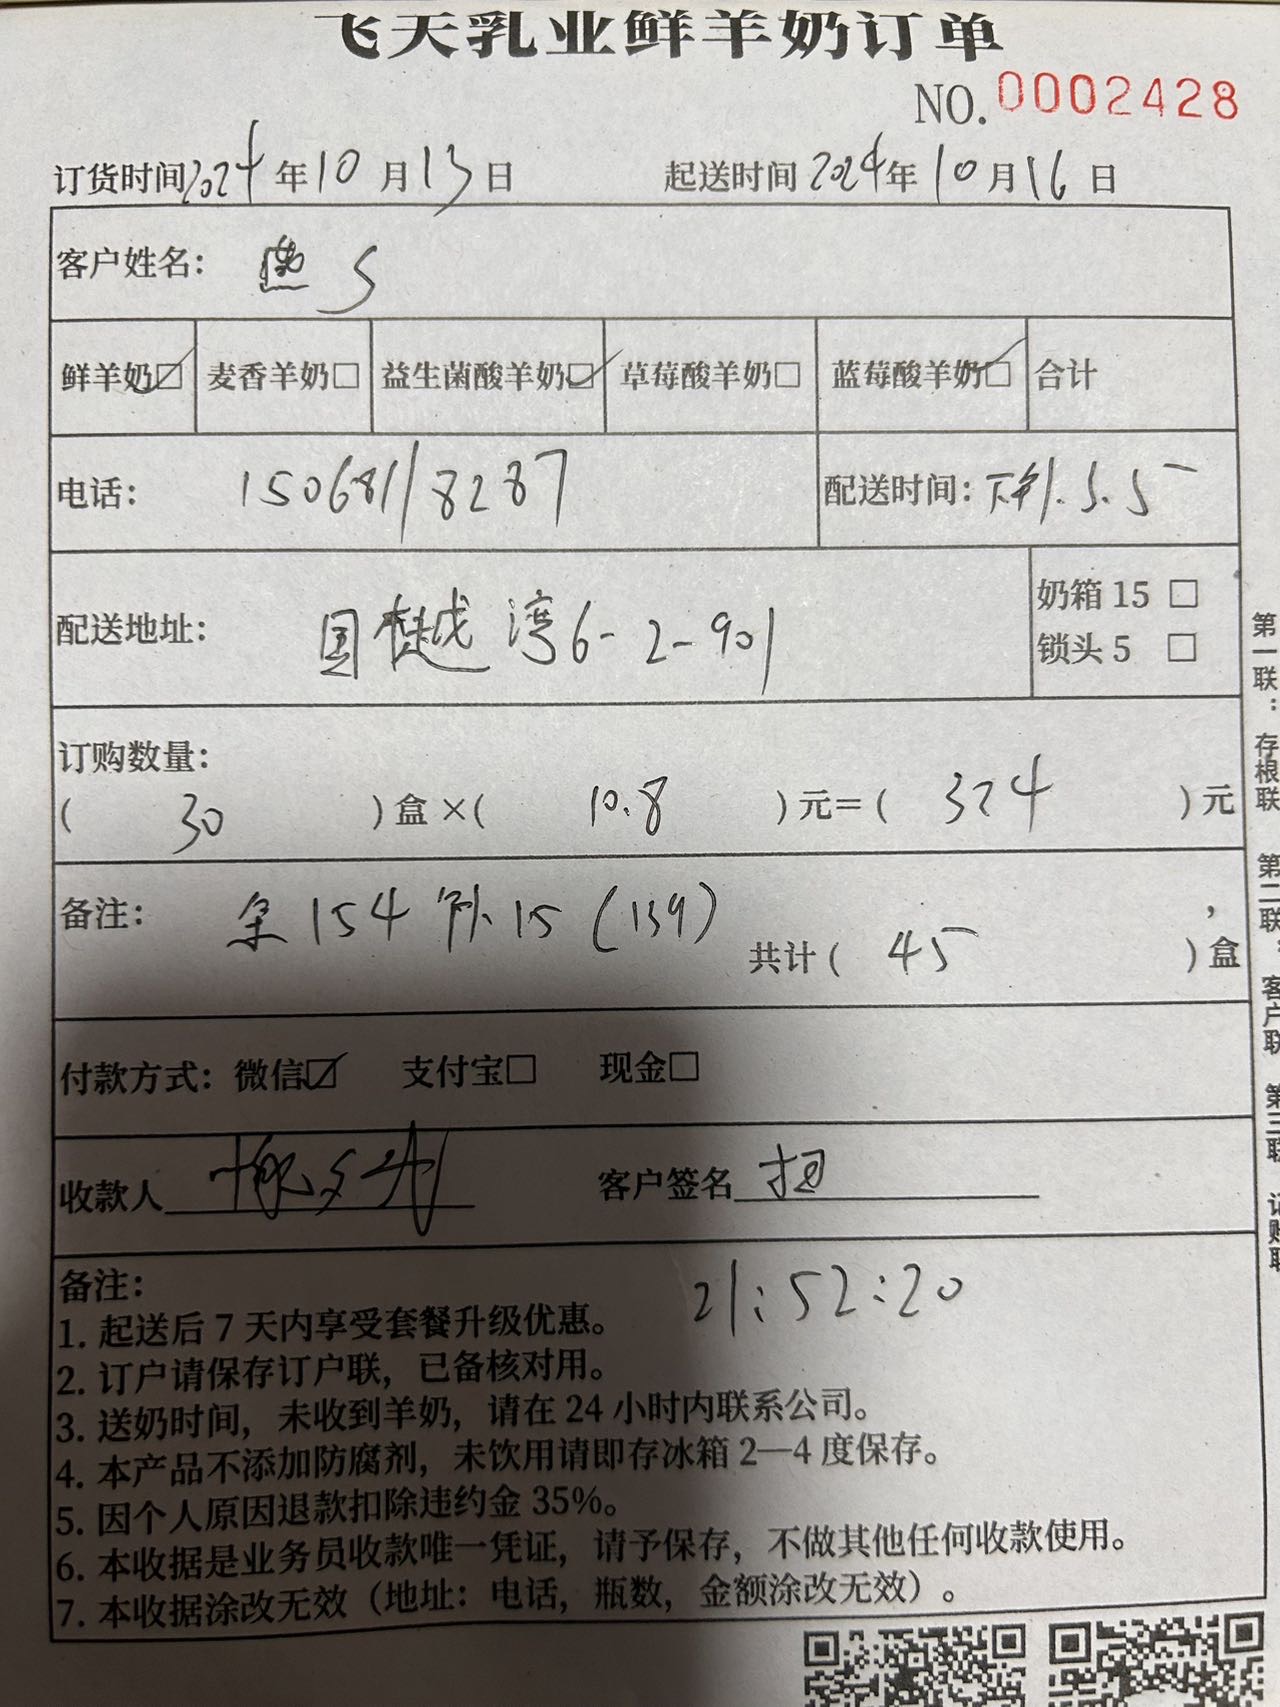 飞天乳业鲜羊奶订单
NO. 0002428
订货时间 2024 年 10 月 13 日 起送时间 2024 年 10 月 16 日
客户姓名：
鲜羊奶☑ 麦香羊奶□ 益生菌酸羊奶☑ 草莓酸羊奶□ 蓝莓酸羊奶☑ 合计
电话： 15068118287 配送时间： 5.5
配送地址： 国樾湾6-2-901
奶箱 15 □
锁头 5 □
订购数量：
( 30 ) 盒 ×( 10.8 ) 元＝( 324 ) 元
备注： 余 154 补 15 (139)
共计 ( 45 ) 盒
付款方式： 微信☑ 支付宝□ 现金□
收款人 客户签名
备注： 21:52:20
1. 起送后 7 天内享受套餐升级优惠。
2. 订户请保存订户联，已备核对用。
3. 送奶时间，未收到羊奶，请在 24 小时内联系公司。
4. 本产品不添加防腐剂，未饮用请即存冰箱 2—4 度保存。
5. 因个人原因退款扣除违约金 35%。
6. 本收据是业务员收款唯一凭证，请予保存，不做其他任何收款使用。
7. 本收据涂改无效（地址：电话，瓶数，金额涂改无效）。
第一联：存根联 第二联：客户联 第三联 记账联